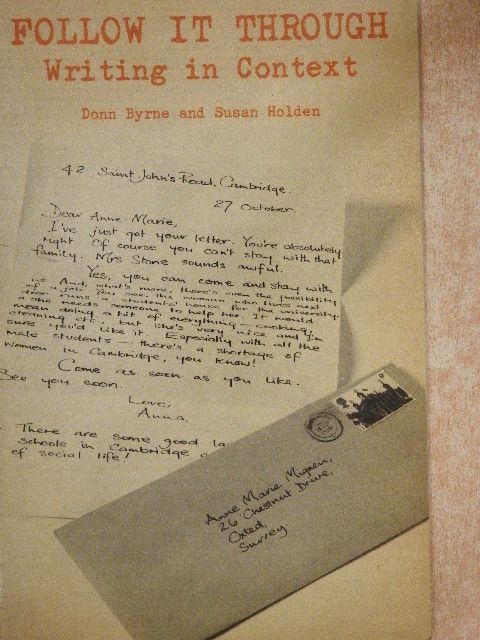 FOLLOW IT THROUGH
Writing in Context
Donn Byrne and Susan Holden
42 Saint John's Road, Cambridge.
27 October.
Dear Anne-Marie,
I've just got your letter. You're absolutely
right. Of course you can't stay with that
family. Mrs Stone sounds awful.
Yes, you can come and stay with
us. And, what's more, there's even the possibility
of a job. You see, this woman who lives next
door runs a students' house for the university
& she needs someone to help her. It would
mean doing a bit of everything - cooking,
cleaning etc, but she's very nice and I'm
sure you'd like it. Especially with all the
male students - there's a shortage of
women in Cambridge, you know!
Come as soon as you like.
See you soon.
Love,
Anna.
There are some good la
schools in Cambridge
of social life!
Anne Marie Mignen,
26 Chestnut Drive,
Oxted,
Surrey